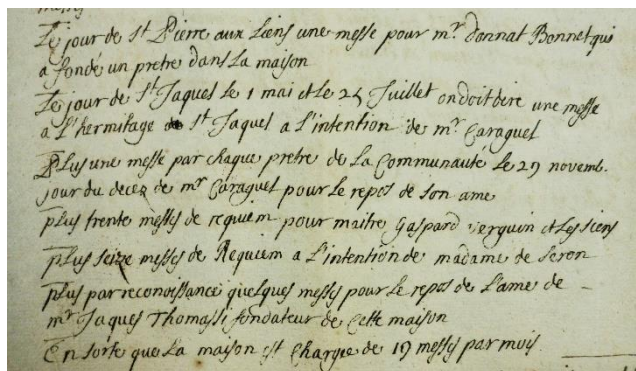 Le jour de St Pierre aux liens une messe pour mr. donnat Bonnet qui
a fondé un pretre dans la maison
Le jour de St Jaques le 1 mai et le 25 Juillet on doit dire une messe
a l'hermitage de St Jaques a l'intention de mr Caraguet
Plus une messe par chaque pretre de la Communauté le 29 novemb.
jour du decez de mr Caraguet pour le repos de son ame
plus trente messes de requiem pour maitre Gaspard verguin et les siens
plus seize messes de Requiem a l'intention de madame de seron
plus par reconoissance quelques messes pour le repos de l'ame de
mr Jaques Thomassi fondateur de cette maison
En sorte que la maison est chargée de 19 messes par mois